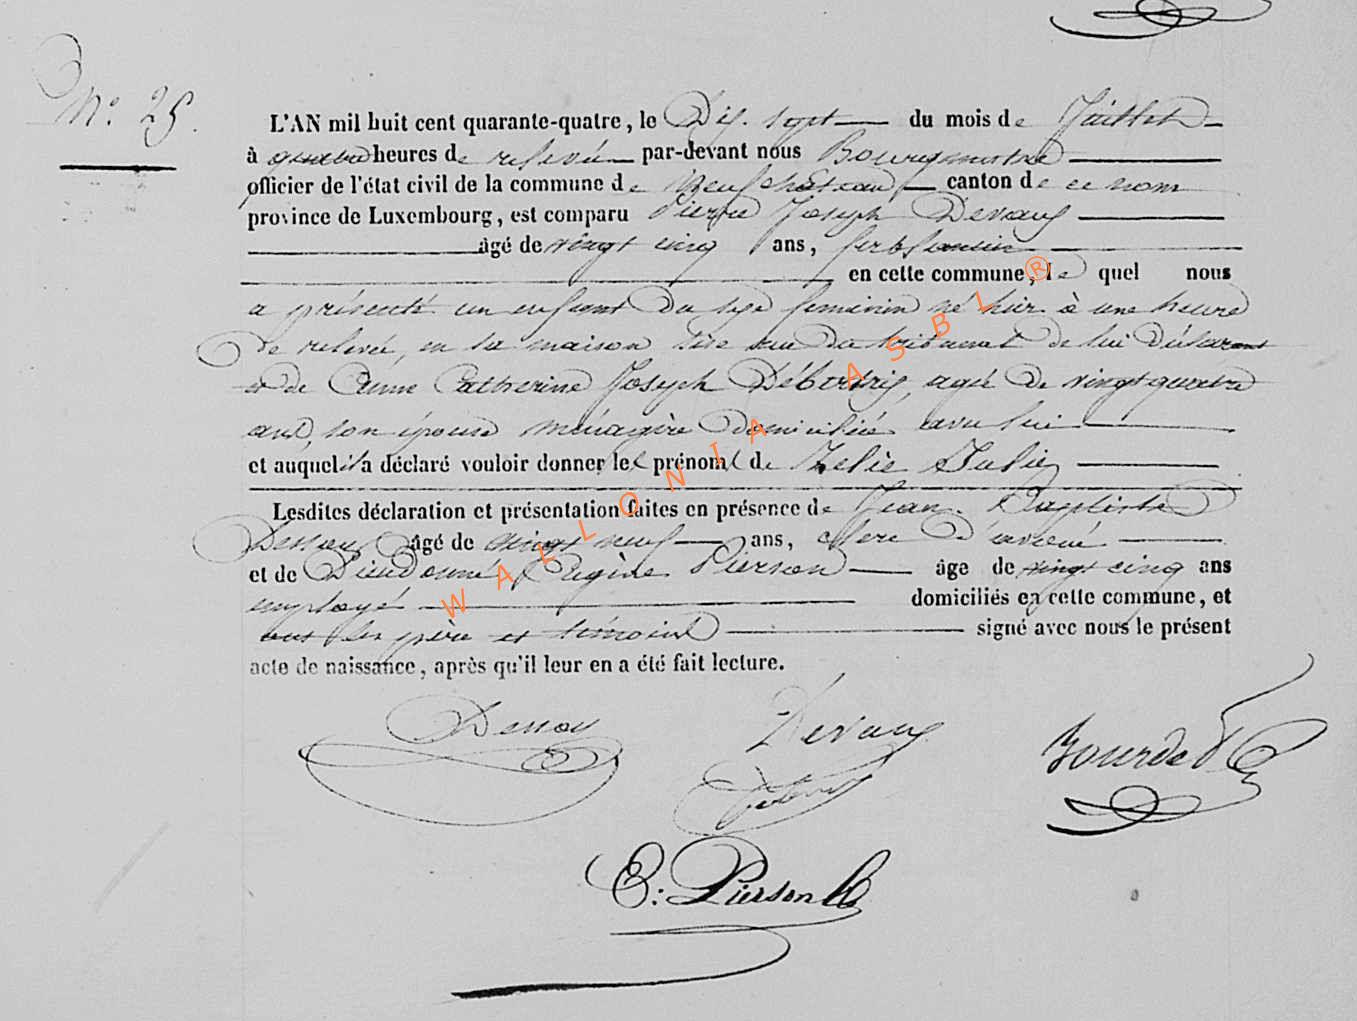 N° 25.
L'AN mil huit cent quarante-quatre, le Dix-sept du mois de Juillet
à quatre heures de relevée par-devant nous Bourgmestre
officier de l'état civil de la commune de Neufchâteau canton de ce nom
province de Luxembourg, est comparu Pierre Joseph Devaux
âgé de vingt cinq ans, ferblantier
en cette commune, le quel nous
a présenté un enfant du sexe féminin né hier à une heure
de relevée, en sa maison sise rue du tribunal de lui déclarant
et de Anne Catherine Joseph agée de vingt quatre
ans, son épouse ménagère domiciliée avec lui
et auquel il a déclaré vouloir donner les prénoms de Zelie Julie
Lesdites déclaration et présentation faites en présence de Jean-Baptiste
Dessoy âgé de vingt neuf ans, clerc d'avoué
et de Dieudonné Eugène Pierson âgé de vingt cinq ans
employé domiciliés en cette commune, et
ont les père et témoins signé avec nous le présent
acte de naissance, après qu'il leur en a été fait lecture.
Dessoy Devaux Bourdet
E: Pierson
WALLONIA ASBL ®